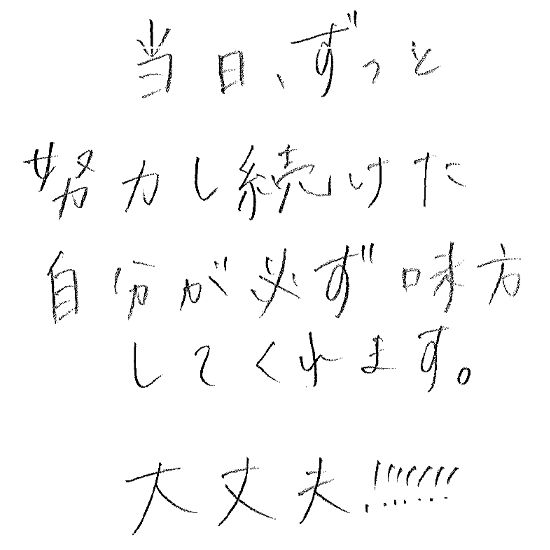 当日、ずっと
努力し続けた
自分が必ず味方
してくれます。
大丈夫!!!!!!!